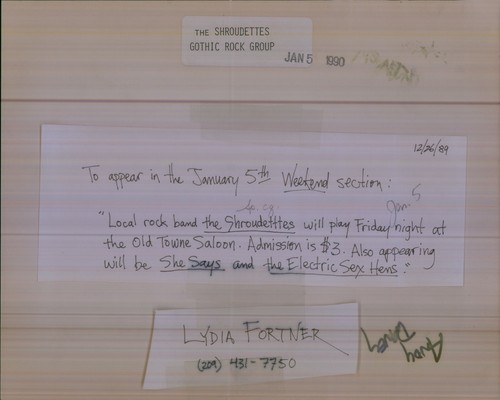 THE SHROUDETTES
GOTHIC ROCK GROUP
JAN 5 1990
12/26/89
To appear in the January 5th Weekend section:
Jan 5
"Local rock band the Shroudettes will play Friday night at
the Old Towne Saloon. Admission is $3. Also appearing
will be She Says and the Electric Sex Hens."
LYDIA FORTNER
(209) 431-7750